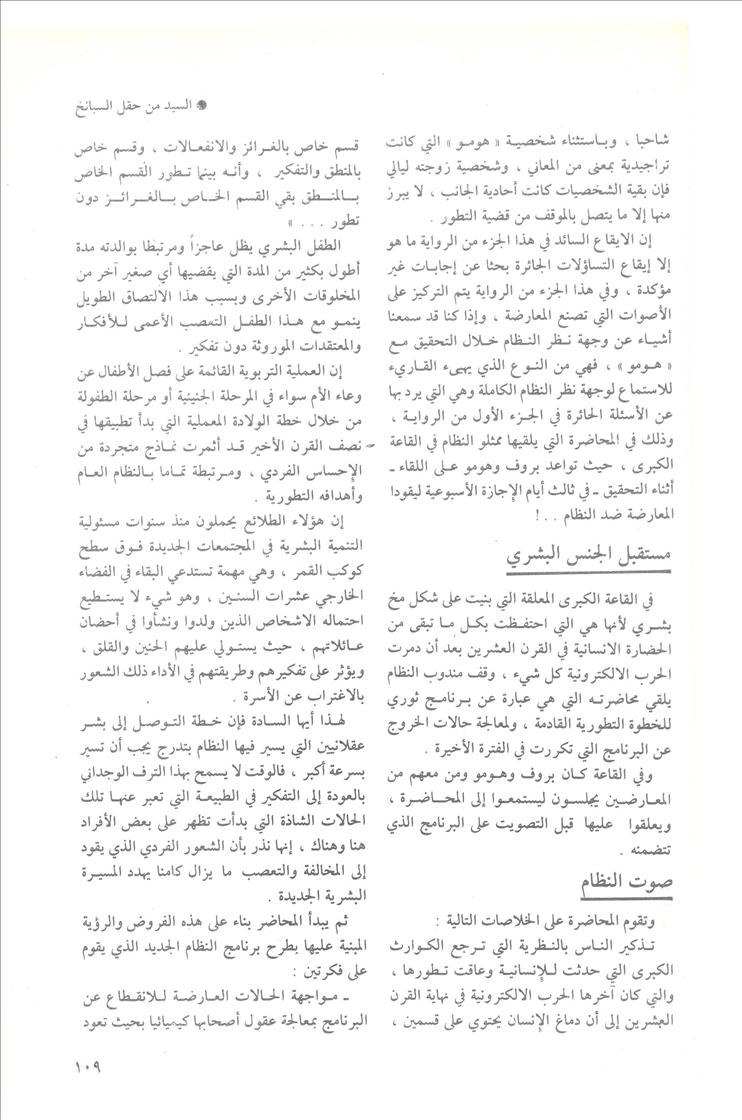 ● السيد من حقل السبانخ
شاحبا ، وباستثناء شخصية « هومو » التي كانت
تراجيدية بمعنى من المعاني ، وشخصية زوجته ليالي
فإن بقية الشخصيات كانت أحادية الجانب ، لا يبرز
منها إلا ما يتصل بالموقف من قضية التطور .
إن الايقاع السائد في هذا الجزء من الرواية ما هو
إلا إيقاع التساؤلات الجائرة بحثا عن إجابات غير
مؤكدة ، وفي هذا الجزء من الرواية يتم التركيز على
الأصوات التي تصنع المعارضة ، وإذا كنا قد سمعنا
أشياء عن وجهة نظر النظام خلال التحقيق مع
« هومو » ، فهي من النوع الذي يهيىء القاريء
للاستماع لوجهة نظر النظام الكاملة وهي التي يرد بها
عن الأسئلة الحائرة في الجزء الأول من الرواية ،
وذلك في المحاضرة التي يلقيها ممثلو النظام في القاعة
الكبرى ، حيث تواعد بروف وهومو على اللقاء ـ
أثناء التحقيق ـ في ثالث أيام الإجازة الأسبوعية ليقودا
المعارضة ضد النظام . . !
مستقبل الجنس البشري
في القاعة الكبرى المعلقة التي بنيت على شكل مخ
بشري لأنها هي التي احتفظت بكل ما تبقى من
الحضارة الانسانية في القرن العشرين بعد أن دمرت
الحرب الالكترونية كل شيء ، وقف مندوب النظام
يلقي محاضرته التي هي عبارة عن برنامج ثوري
للخطوة التطورية القادمة ، ولمعالجة حالات الخروج
عن البرنامج التي تكررت في الفترة الأخيرة .
وفي القاعة كان بروف وهومو ومن معهم من
المعارضين يجلسون ليستمعوا إلى المحاضرة ،
ويعلقوا عليها قبل التصويت على البرنامج الذي
تتضمنه .
صوت النظام
وتقوم المحاضرة على الخلاصات التالية :
تذكير الناس بالنظرية التي ترجع الكوارث
الكبرى التي حدثت للإنسانية وعاقت تطورها ،
والتي كان آخرها الحرب الالكترونية في نهاية القرن
العشرين إلى أن دماغ الإنسان يحتوي على قسمين ،
قسم خاص بالغرائز والانفعالات ، وقسم خاص
بالمنطق والتفكير ، وأنه بينما تطور القسم الخاص
بالمنطق بقي القسم الخاص بالغرائز دون
تطور . . . »
الطفل البشري يظل عاجزاً ومرتبطا بوالدته مدة
أطول بكثير من المدة التي يقضيها أي صغير آخر من
المخلوقات الأخرى وبسبب هذا الالتصاق الطويل
ينمو مع هذا الطفل التعصب الأعمى للأفكار
والمعتقدات الموروثة دون تفكير .
إن العملية التربوية القائمة على فصل الأطفال عن
وعاء الأم سواء في المرحلة الجنينية أو مرحلة الطفولة
من خلال خطة الولادة المعملية التي بدأ تطبيقها في
نصف القرن الأخير قد أثمرت نماذج متجردة من
الإحساس الفردي ، ومرتبطة تماما بالنظام العام
وأهدافه التطورية .
إن هؤلاء الطلائع يحملون منذ سنوات مسئولية
التنمية البشرية في المجتمعات الجديدة فوق سطح
كوكب القمر ، وهي مهمة تستدعي البقاء في الفضاء
الخارجي عشرات السنين ، وهو شيء لا يستطيع
احتماله الاشخاص الذين ولدوا ونشأوا في أحضان
عائلاتهم ، حيث يستولي عليهم الحنين والقلق ،
ويؤثر على تفكيرهم وطريقتهم في الأداء ذلك الشعور
بالاغتراب عن الأسرة .
لهذا أيها السادة فإن خطة التوصل إلى بشر
عقلانيين التي يسير فيها النظام بتدرج يجب أن تسير
بسرعة أكبر ، فالوقت لا يسمح بهذا الترف الوجداني
بالعودة إلى التفكير في الطبيعة التي تعبر عنها تلك
الحالات الشاذة التي بدأت تظهر على بعض الأفراد
هنا وهناك ، إنها نذر بأن الشعور الفردي الذي يقود
إلى المخالفة والتعصب ما يزال كامنا يهدد المسيرة
البشرية الجديدة .
ثم يبدأ المحاضر بناء على هذه الفروض والرؤية
المبنية عليها بطرح برنامج النظام الجديد الذي يقوم
على فكرتين :
ـ مواجهة الحالات العارضة للانقطاع عن
البرنامج بمعالجة عقول أصحابها كيميائيا بحيث تعود
١٠٩